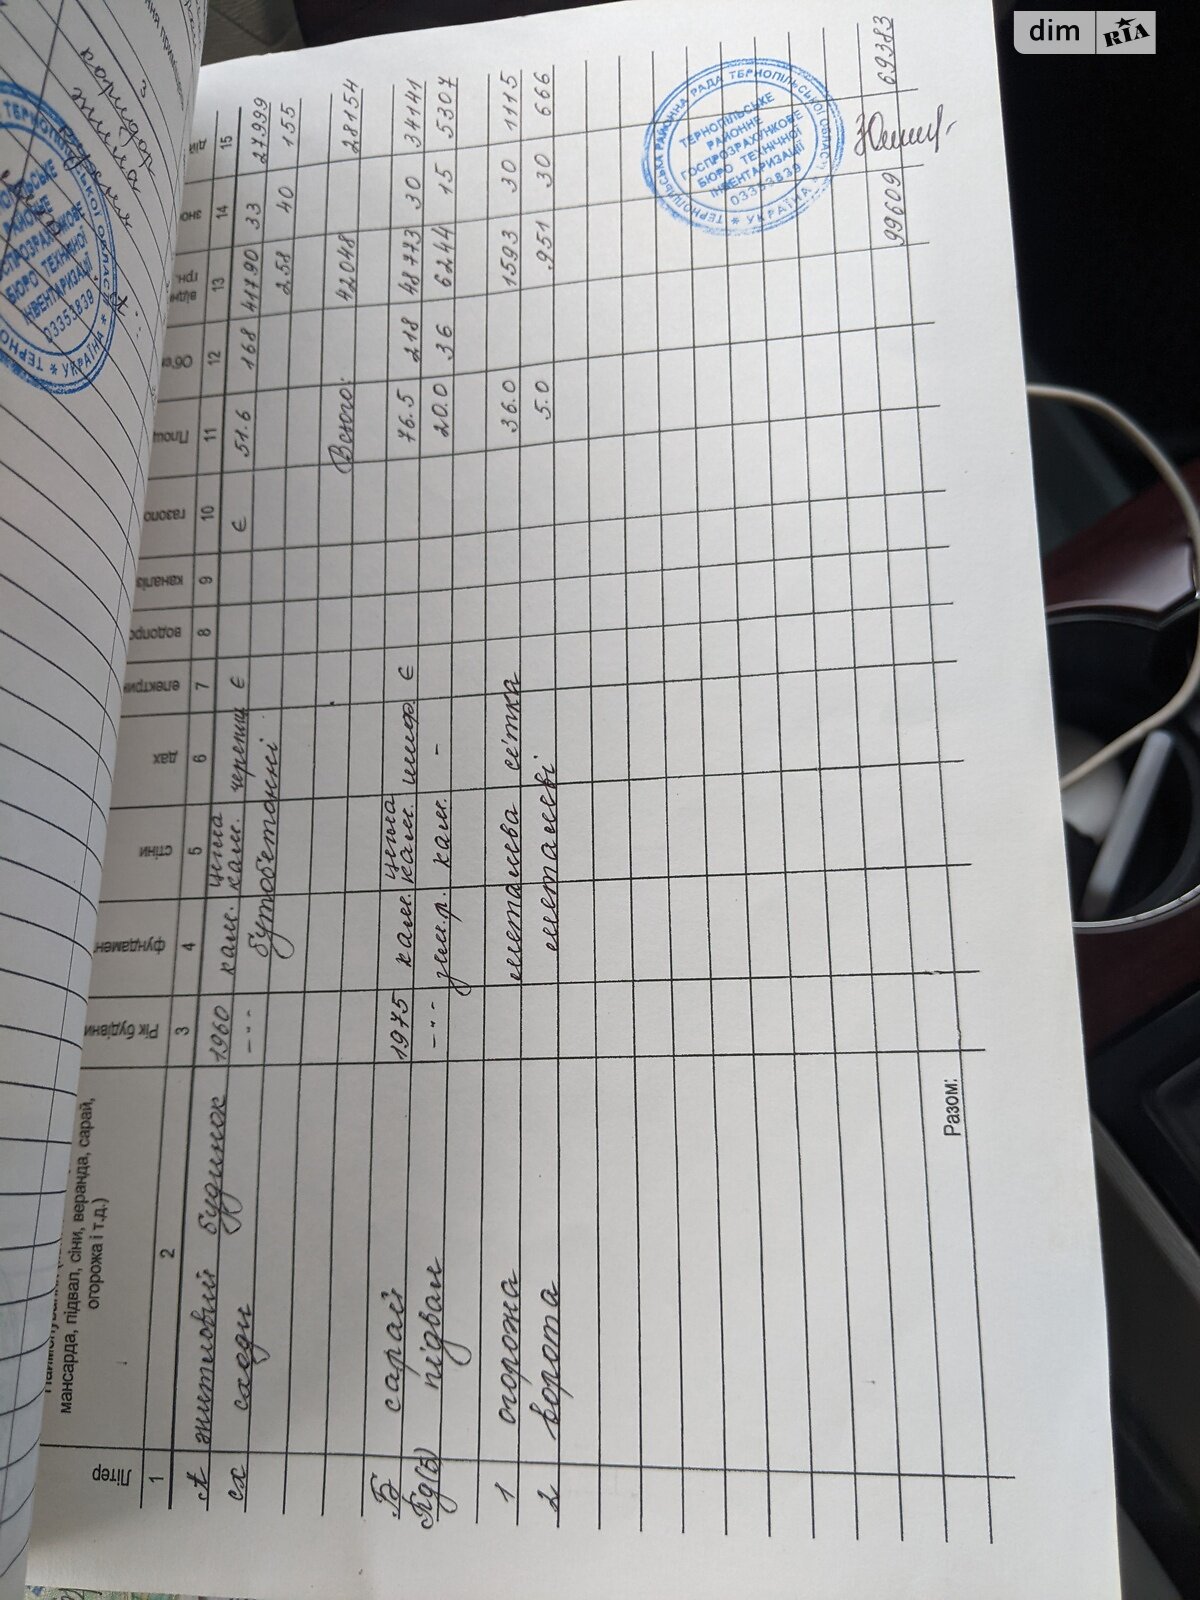 dim RIA
мансарда, підвал, сіни, веранда, сарай,
огорожа і т.д.)
Літер
Рік будівни
фундамен
стіни
дах
електрик
водопро
каналіз
газопо
Площ
Об'є
відн
грн.
знос
дій
1 2 3 4 5 6 7 8 9 10 11 12 13 14 15
А житловий будинок 1960 кам. цегла кам. черепиц є є 51.6 168 41790 33 27999
сх сходи -"- бутобетонні 258 40 155
Всього: 42048 28154
Б сарай 1975 кам. цегла кам. шифр є 76.5 218 48773 30 34141
Пд(Б) підвал -"- кам. - 20.0 36 6244 15 5307
1 огорожа металева сітка 36.0 1593 30 1115
2 ворота металеві 5.0 951 30 666
Разом:
99609 69383
ТЕРНОПІЛЬСЬКА РАЙОННА РАДА ТЕРНОПІЛЬСЬКОЇ ОБЛАСТІ
* УКРАЇНА *
ТЕРНОПІЛЬСЬКЕ
РАЙОННЕ
ГОСПРОЗРАХУНКОВЕ
БЮРО ТЕХНІЧНОЇ
ІНВЕНТАРИЗАЦІЇ
03353839
3
коридор
РАЙОННЕ
БЮРО ТЕХНІЧНОЇ
ІНВЕНТАРИЗАЦІЇ
03353839
* УКРАЇНА *